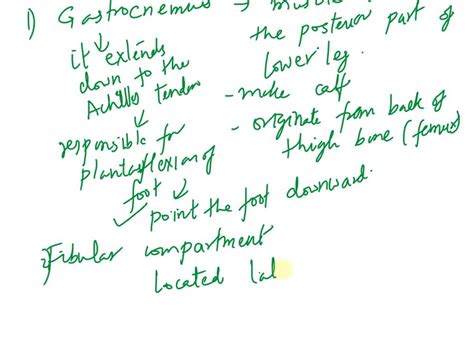 1) Gastrocnemius → muscle
the posterior part of
lower leg.
- make calf
- originate from back of
thigh bone (femur)
it extends
down to the
Achilles tendon
responsible for
plantarflexion of
foot
point the foot downward.
2) Fibular compartment
Located lal